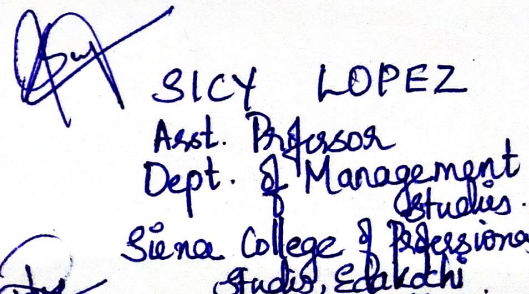 SICY LOPEZ
Asst. Professor
Dept. of Management
Studies.
Siena College of Professional
Studies, Edakochi